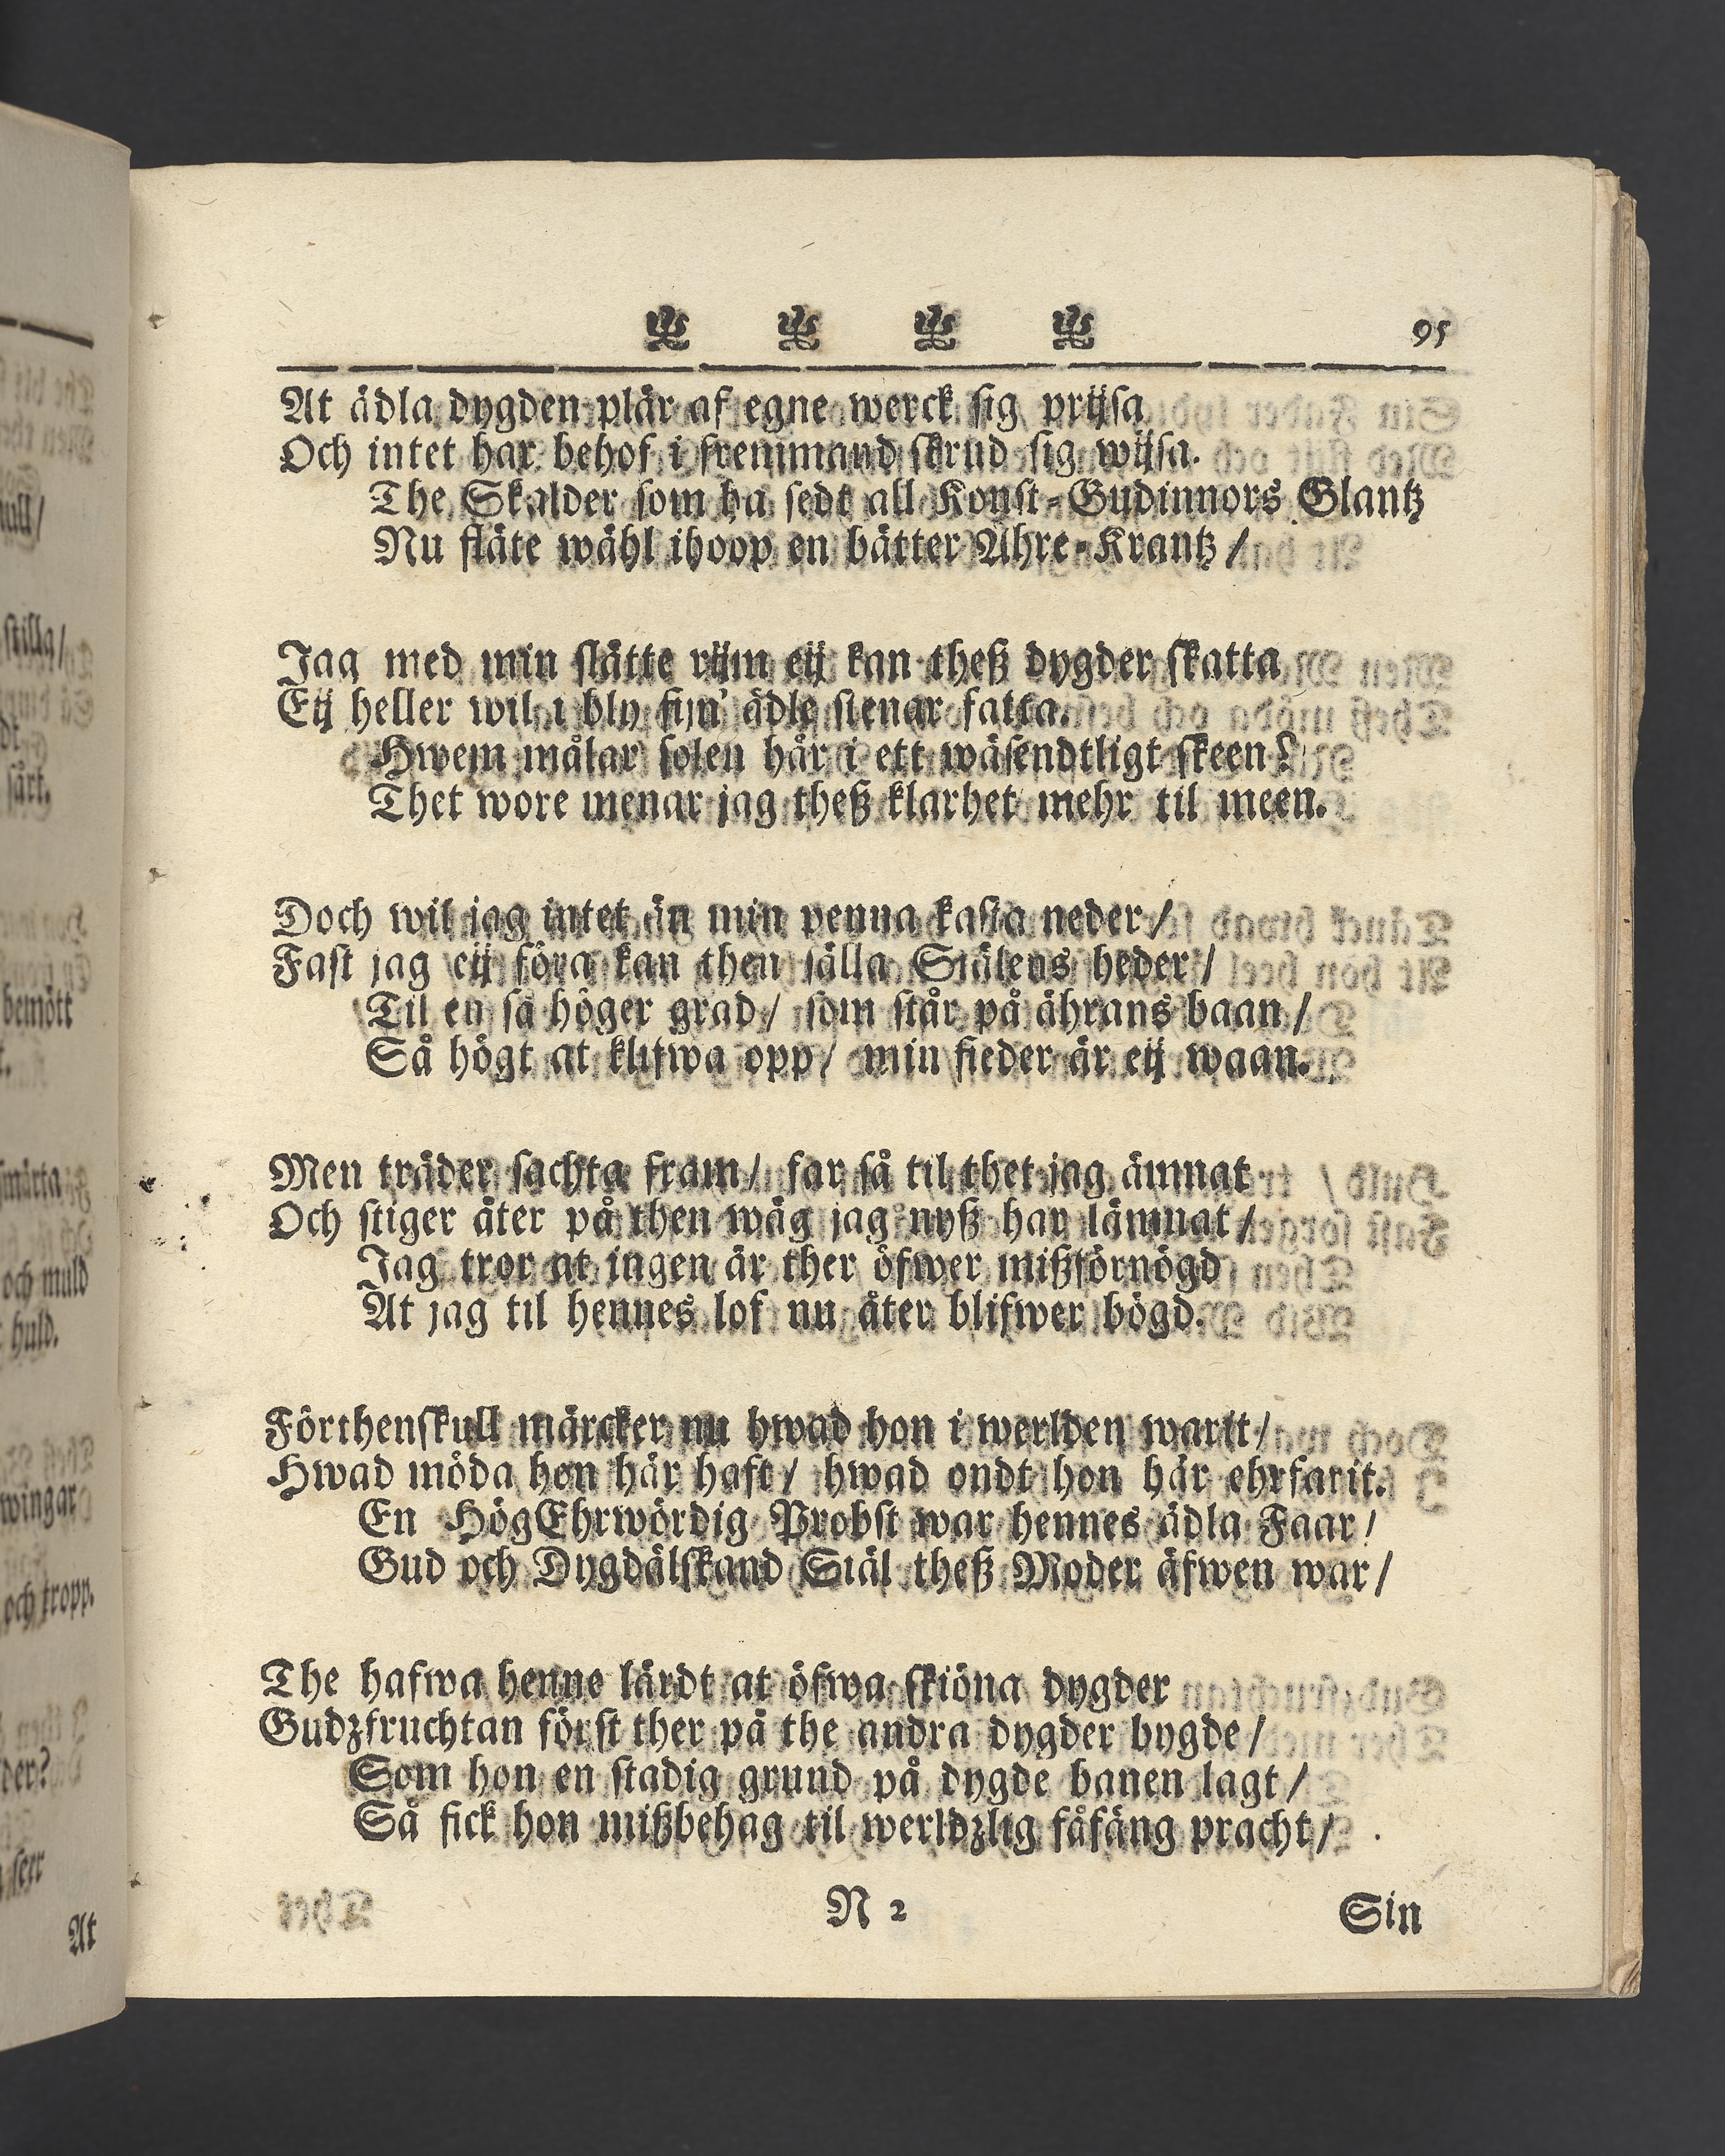 95
At ädla dygden plär af egne werck sig prijsa
Och intet har behof i fremmand skrud sig wijsa.
The Skalder som ha sedt all Konst-Gudinnors Glantz
Nu fläte wähl ihoop en bätter Ähre-Krantz /
Jag med min slätte rijm eij kan theß dygder skatta
Eij heller wil i bly fijn' ädle stenar fatta.
Hwem målar solen här i ett wäsendtligt skeen?
Thet wore menar jag theß klarhet mehr til meen.
Doch wil jag intet än min penna kasta neder /
Fast jag eij föra kan then sälla Siälens heder /
Til en så höger grad / som står på ährans baan /
Så högt at klifwa opp / min fieder är eij waan.
Men träder sachta fram / far så til thet jag ämnat
Och stiger åter på then wäg jag nyß har lämnat /
Jag tror at ingen är ther öfwer mißförnögd
At jag til hennes lof nu åter blifwer bögd.
Förthenskull märcker nu hwad hon i werlden warit /
Hwad möda hon här haft / hwad ondt hon här ehrfarit.
En HögEhrwördig Probst war hennes ädla Faar /
Gud och Dygdälskand Siäl theß Moder äfwen war /
The hafwa henne lärdt at öfwa skiöna dygder
Gudzfruchtan först ther på the andra dygder bygde /
Som hon en stadig grund på dygde banen lagt /
Så fick hon mißbehag til werldzlig fåfäng pracht /
N 2
Sin